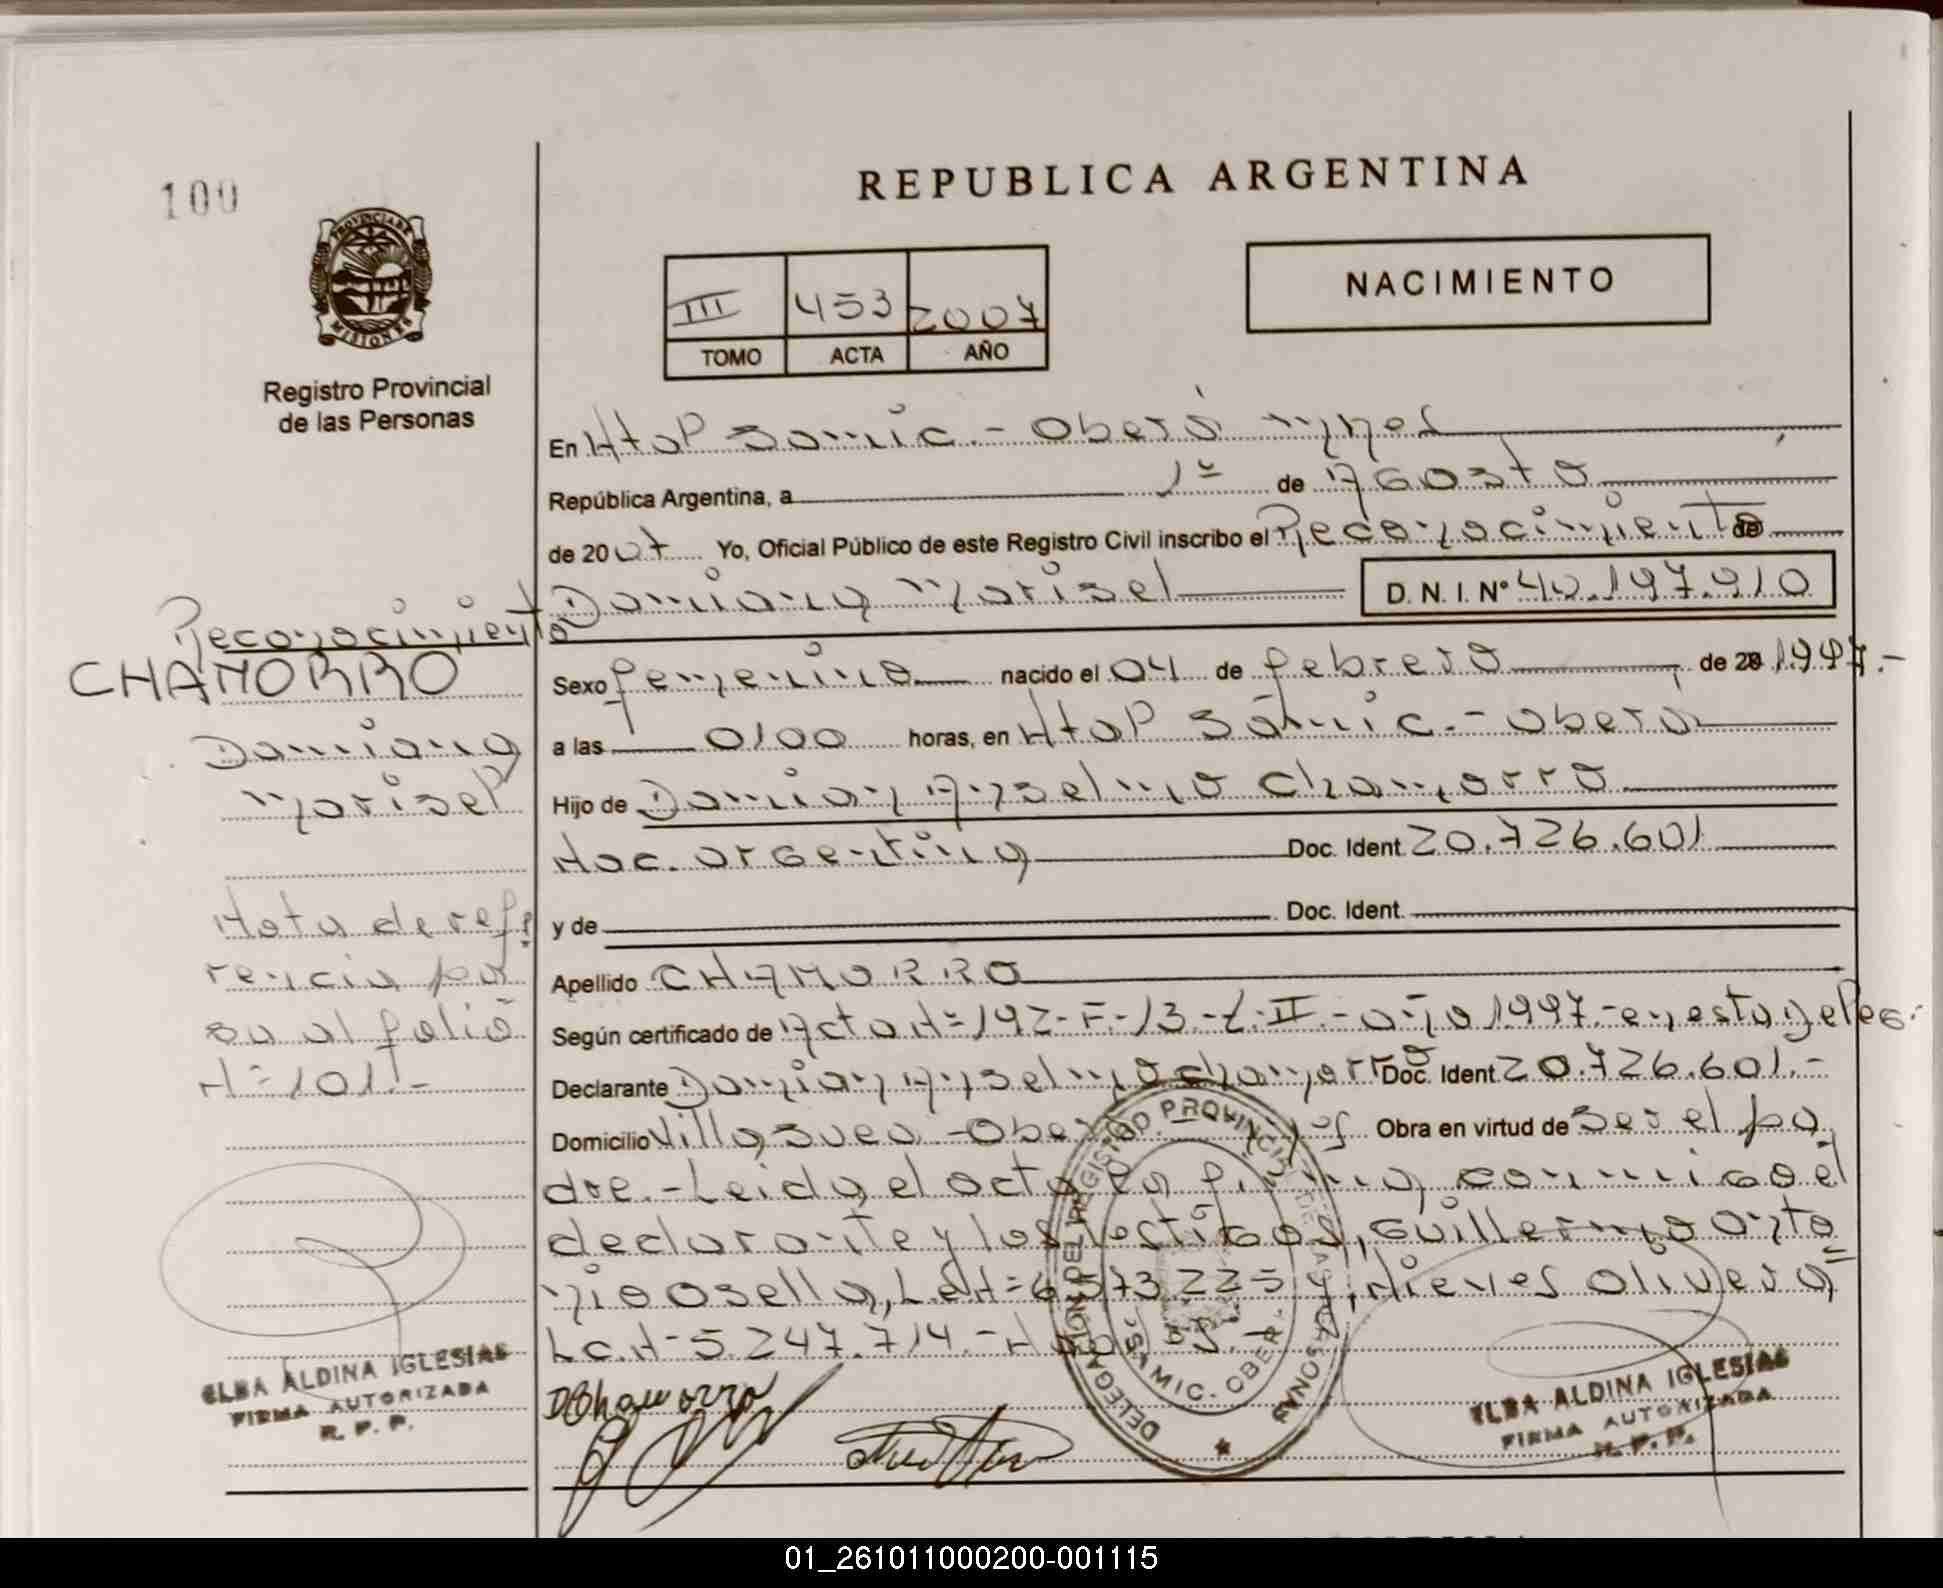 100
REPUBLICA ARGENTINA
PROVINCIA DE
MISIONES
Registro Provincial
de las Personas
III 453 2007
TOMO ACTA AÑO
NACIMIENTO
En Htal Samic.- Oberá Mnes
República Argentina, a 1º de Agosto
de 2007 Yo, Oficial Público de este Registro Civil inscribo el Reconocimiento de
Damiana Marisel D. N. I. Nº 40.197.910
Sexo femenino nacido el 04 de febrero de 20 1997.-
a las 0100 horas, en Htal Sámic.- Oberá
Hijo de Damian Anselmo Chamorro
Nac. argentina Doc. Ident. 20.726.601
y de Doc. Ident.
Apellido CHAMORRO
Según certificado de Acta Nº 192-F-13-t-II.- año 1997.- en esta deleg.
Declarante Damian Anselmo Chamorro Doc. Ident. 20.726.601.-
Domicilio Villa Sueca - Oberá Mnes Obra en virtud de ser el pa
dre.- Leida el acta la firma conmigo el
declarante y los testigos, Guillermo Anto
nio Osella, L.E.N=6.573.225 y, Nieves Olivera=
L.C.N-5.247.714.-
Reconocimiento
CHAMORRO
Damiana
Marisel
Nota de refe
rencia pa
sa al folio
Nº 101.-
ELBA ALDINA IGLESIAS
FIRMA AUTORIZADA
R. P. P.
DChamorro
DELEGACION DEL REGISTRO PROVINCIAL DE LAS PERSONAS
SAMIC. OBERA
ELBA ALDINA IGLESIAS
FIRMA AUTORIZADA
R. P. P.
01_261011000200-001115